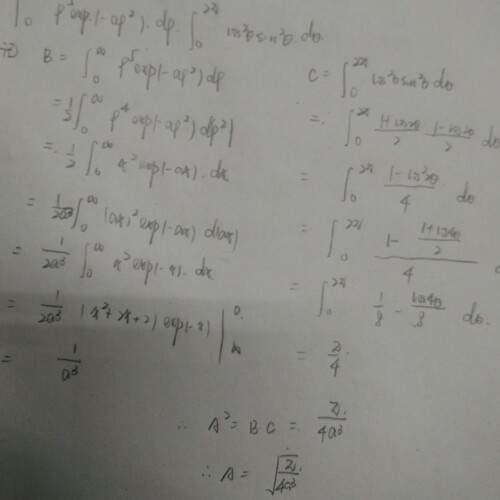 ∫₀^∞ ρ⁵ exp(-aρ²)·dρ · ∫₀^{2π} cos²θ sin²θ dθ
记 B = ∫₀^∞ ρ⁵ exp(-aρ²) dρ
= ½ ∫₀^∞ ρ⁴ exp(-aρ²) d(ρ²)
= ½ ∫₀^∞ x² exp(-ax)·dx
= 1/(2a³) ∫₀^∞ (ax)² exp(-ax) d(ax)
= 1/(2a³) ∫₀^∞ x² exp(-x)·dx
= 1/(2a³) (x²+2x+2) exp(-x) |_∞^0
= 1/a³
C = ∫₀^{2π} cos²θ sin²θ dθ
= ∫₀^{2π} (1+cos2θ)/2 · (1-cos2θ)/2 dθ
= ∫₀^{2π} (1-cos²2θ)/4 dθ
= ∫₀^{2π} (1 - (1+cos4θ)/2)/4 d
= ∫₀^{2π} 1/8 - cos4θ/8 dθ
= π/4
∴ A² = BC = π/(4a³)
∴ A = √(π/(4a³))